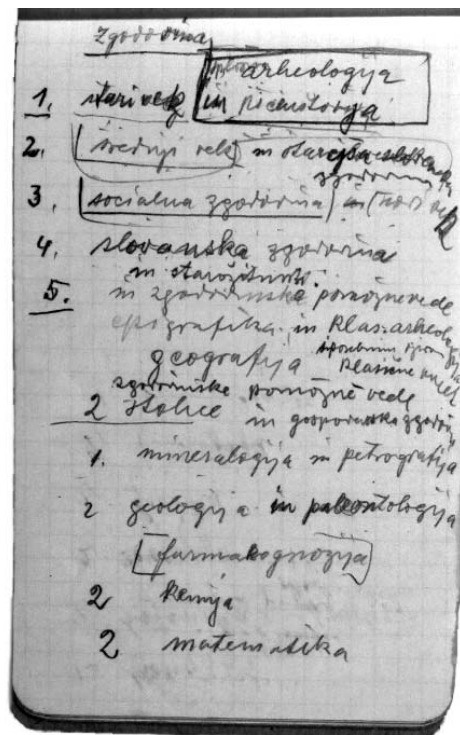 Zgodovina
arheologija
1. stari vek in prehistorija
2. srednji vek in starejša slovenska
zgodovina
3. socialna zgodovina in novi vek
4. slovanska zgodovina
in starožitnosti
5. in zgodovinske pomožne vede
epigrafika in klas. arheologija
geografija
zgodovinske pomožne vede
2 stolice in gospodarska zgodov.
1. mineralogija in petrografija
2 geologija in paleontologija
farmakognozija
2 kemija
2 matematika